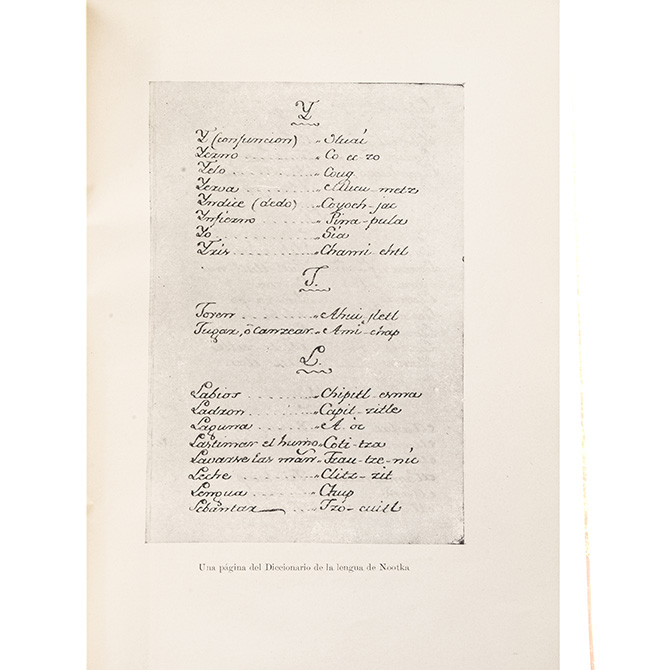 Y
Y (confuncion) .. Sluai
Yerno .......... Co-cz-zo
Yelo ........... Couq
Yerva .......... metz
Yndice (dedo) .. Coyoch-jac
Ynfierno ....... Pina-pula
Yo ............. Sia
Yris ........... Chami-chtl
J.
Joven .......... Ahui,
Jugar, ò Canzear .. Ami-chap
L.
Labios ......... Chipitl-exma
Ladron ......... Capil-zitle
Laguna ......... A-oc
Lastimar el humo Coti-tza
Lavarse las man Tzau-tze-nic
Leche .......... Clitz-zit
Lengua ......... Chup
Lebantar Tzo-cuitl
Una página del Diccionario de la lengua de Nootka